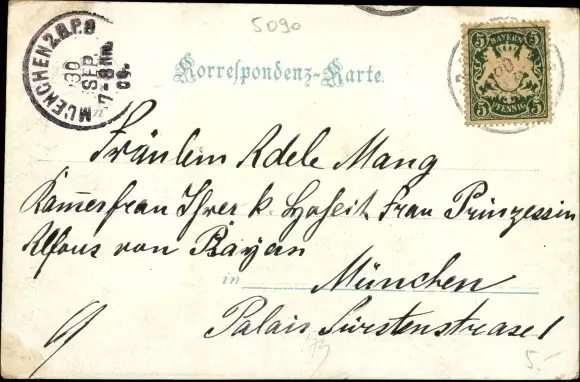 5090
MUENCHEN 2.B.P.9
30
SEP.
7-8 Nm.
00.
5 BAYERN 5
5 PFENNIG 5
Korrespondenz-Karte.
Fräulein Adele Mang
Kam̄erfrau Ihrer k. Hoheit Frau Prinzessin
Alfons von Bayern
in München
Palais Fürstenstrasse 1
5.-